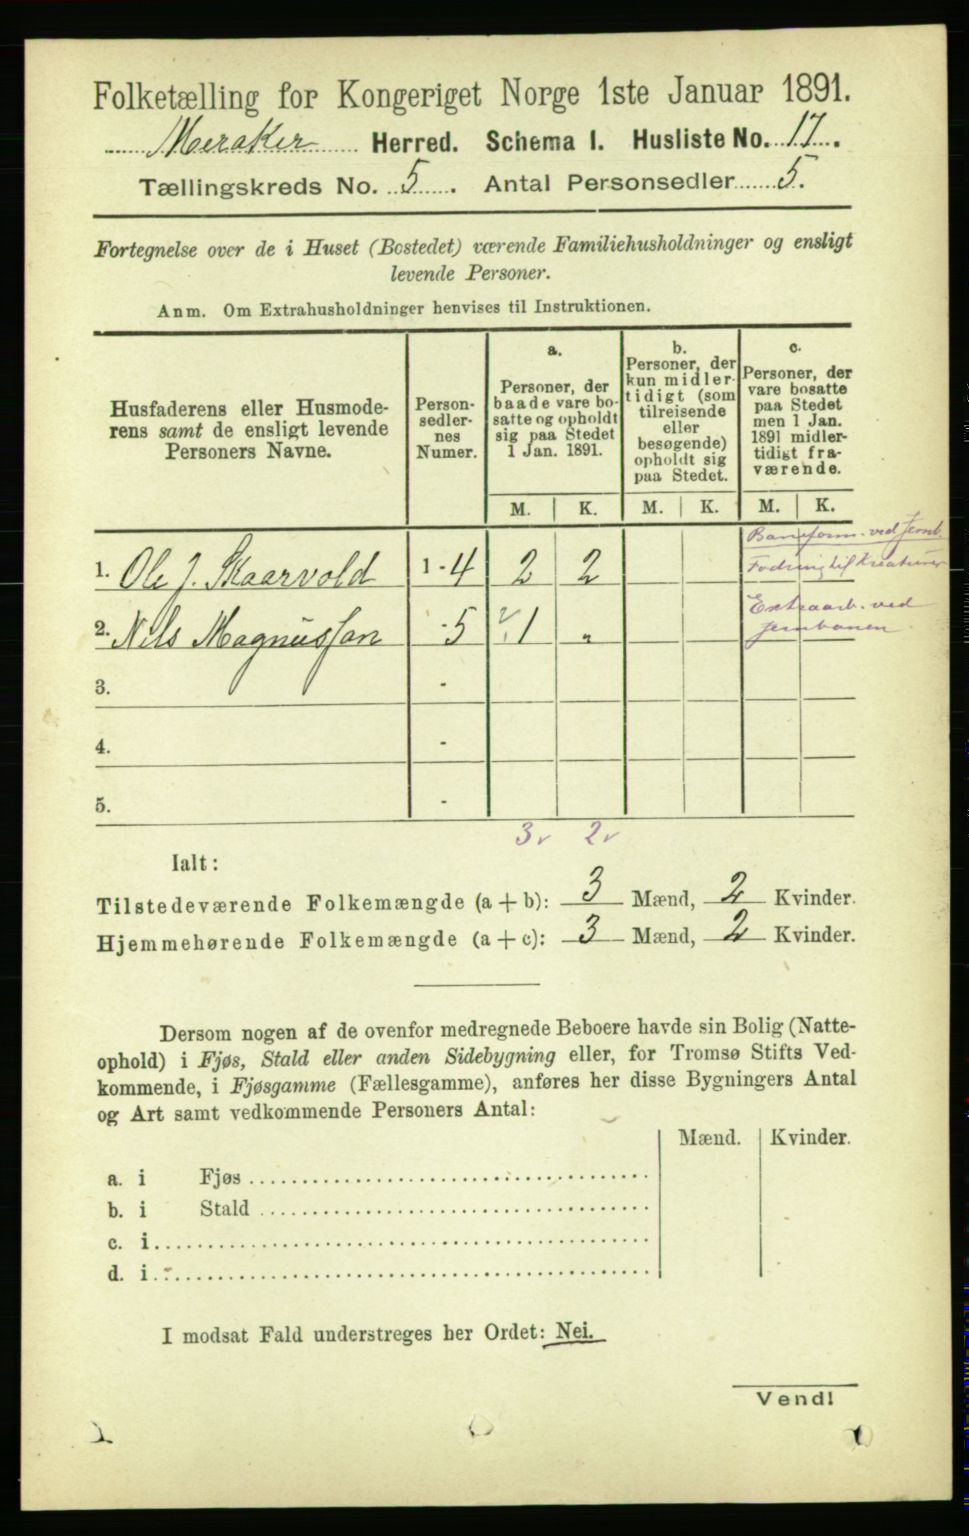 Folketælling for Kongeriget Norge 1ste Januar 1891.
Meraker Herred. Schema I. Husliste No. 17.
Tællingskreds No. 5. Antal Personsedler 5.
Fortegnelse over de i Huset (Bostedet) værende Familiehusholdninger og ensligt
levende Personer.
Anm. Om Extrahusholdninger henvises til Instruktionen.
Husfaderens eller Husmode-
rens samt de ensligt levende
Personers Navne.
Person-
sedler-
nes
Numer.
a.
Personer, der
baade vare bo-
satte og opholdt
sig paa Stedet
1 Jan. 1891.
b.
Personer, der
kun midler-
tidigt (som
tilreisende
eller
besøgende)
opholdt sig
paa Stedet.
c.
Personer, der
vare bosatte
paa Stedet
men 1 Jan.
1891 midler-
tidigt fra-
værende.
M. K. M. K. M. K.
Banform. ved Jernb.
1. Ole J. Skaarvold 1-4 2 2 Fodring til Kreaturer
Extraarb. ved
2. Nils Magnusson -5 1 „ Jernbanen
3. -
4. -
5. -
3 2
Ialt:
Tilstedeværende Folkemængde (a + b): 3 Mænd, 2 Kvinder.
Hjemmehørende Folkemængde (a + c): 3 Mænd, 2 Kvinder.
Dersom nogen af de ovenfor medregnede Beboere havde sin Bolig (Natte-
ophold) i Fjøs, Stald eller anden Sidebygning eller, for Tromsø Stifts Ved-
kommende, i Fjøsgamme (Fællesgamme), anføres her disse Bygningers Antal
og Art samt vedkommende Personers Antal:
Mænd. Kvinder.
a. i Fjøs
b. i Stald
c. i
d. i
I modsat Fald understreges her Ordet: Nei.
Vend!